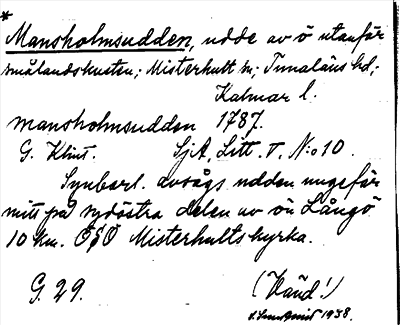 *
Mansholmsudden, udde av ö utanför
smålandskusten; Misterhult sn; Tunaläns hd;
Kalmar l.
Mansholmsudden 1787.
G. Klint. SjA, Litt. T. N:o 10.
Synbarl. avsågs udden ungefär
mitt på sydöstra delen av ön Långö
10 km. OSO Misterhults kyrka.
G. 29. (Vänd!)
1938.